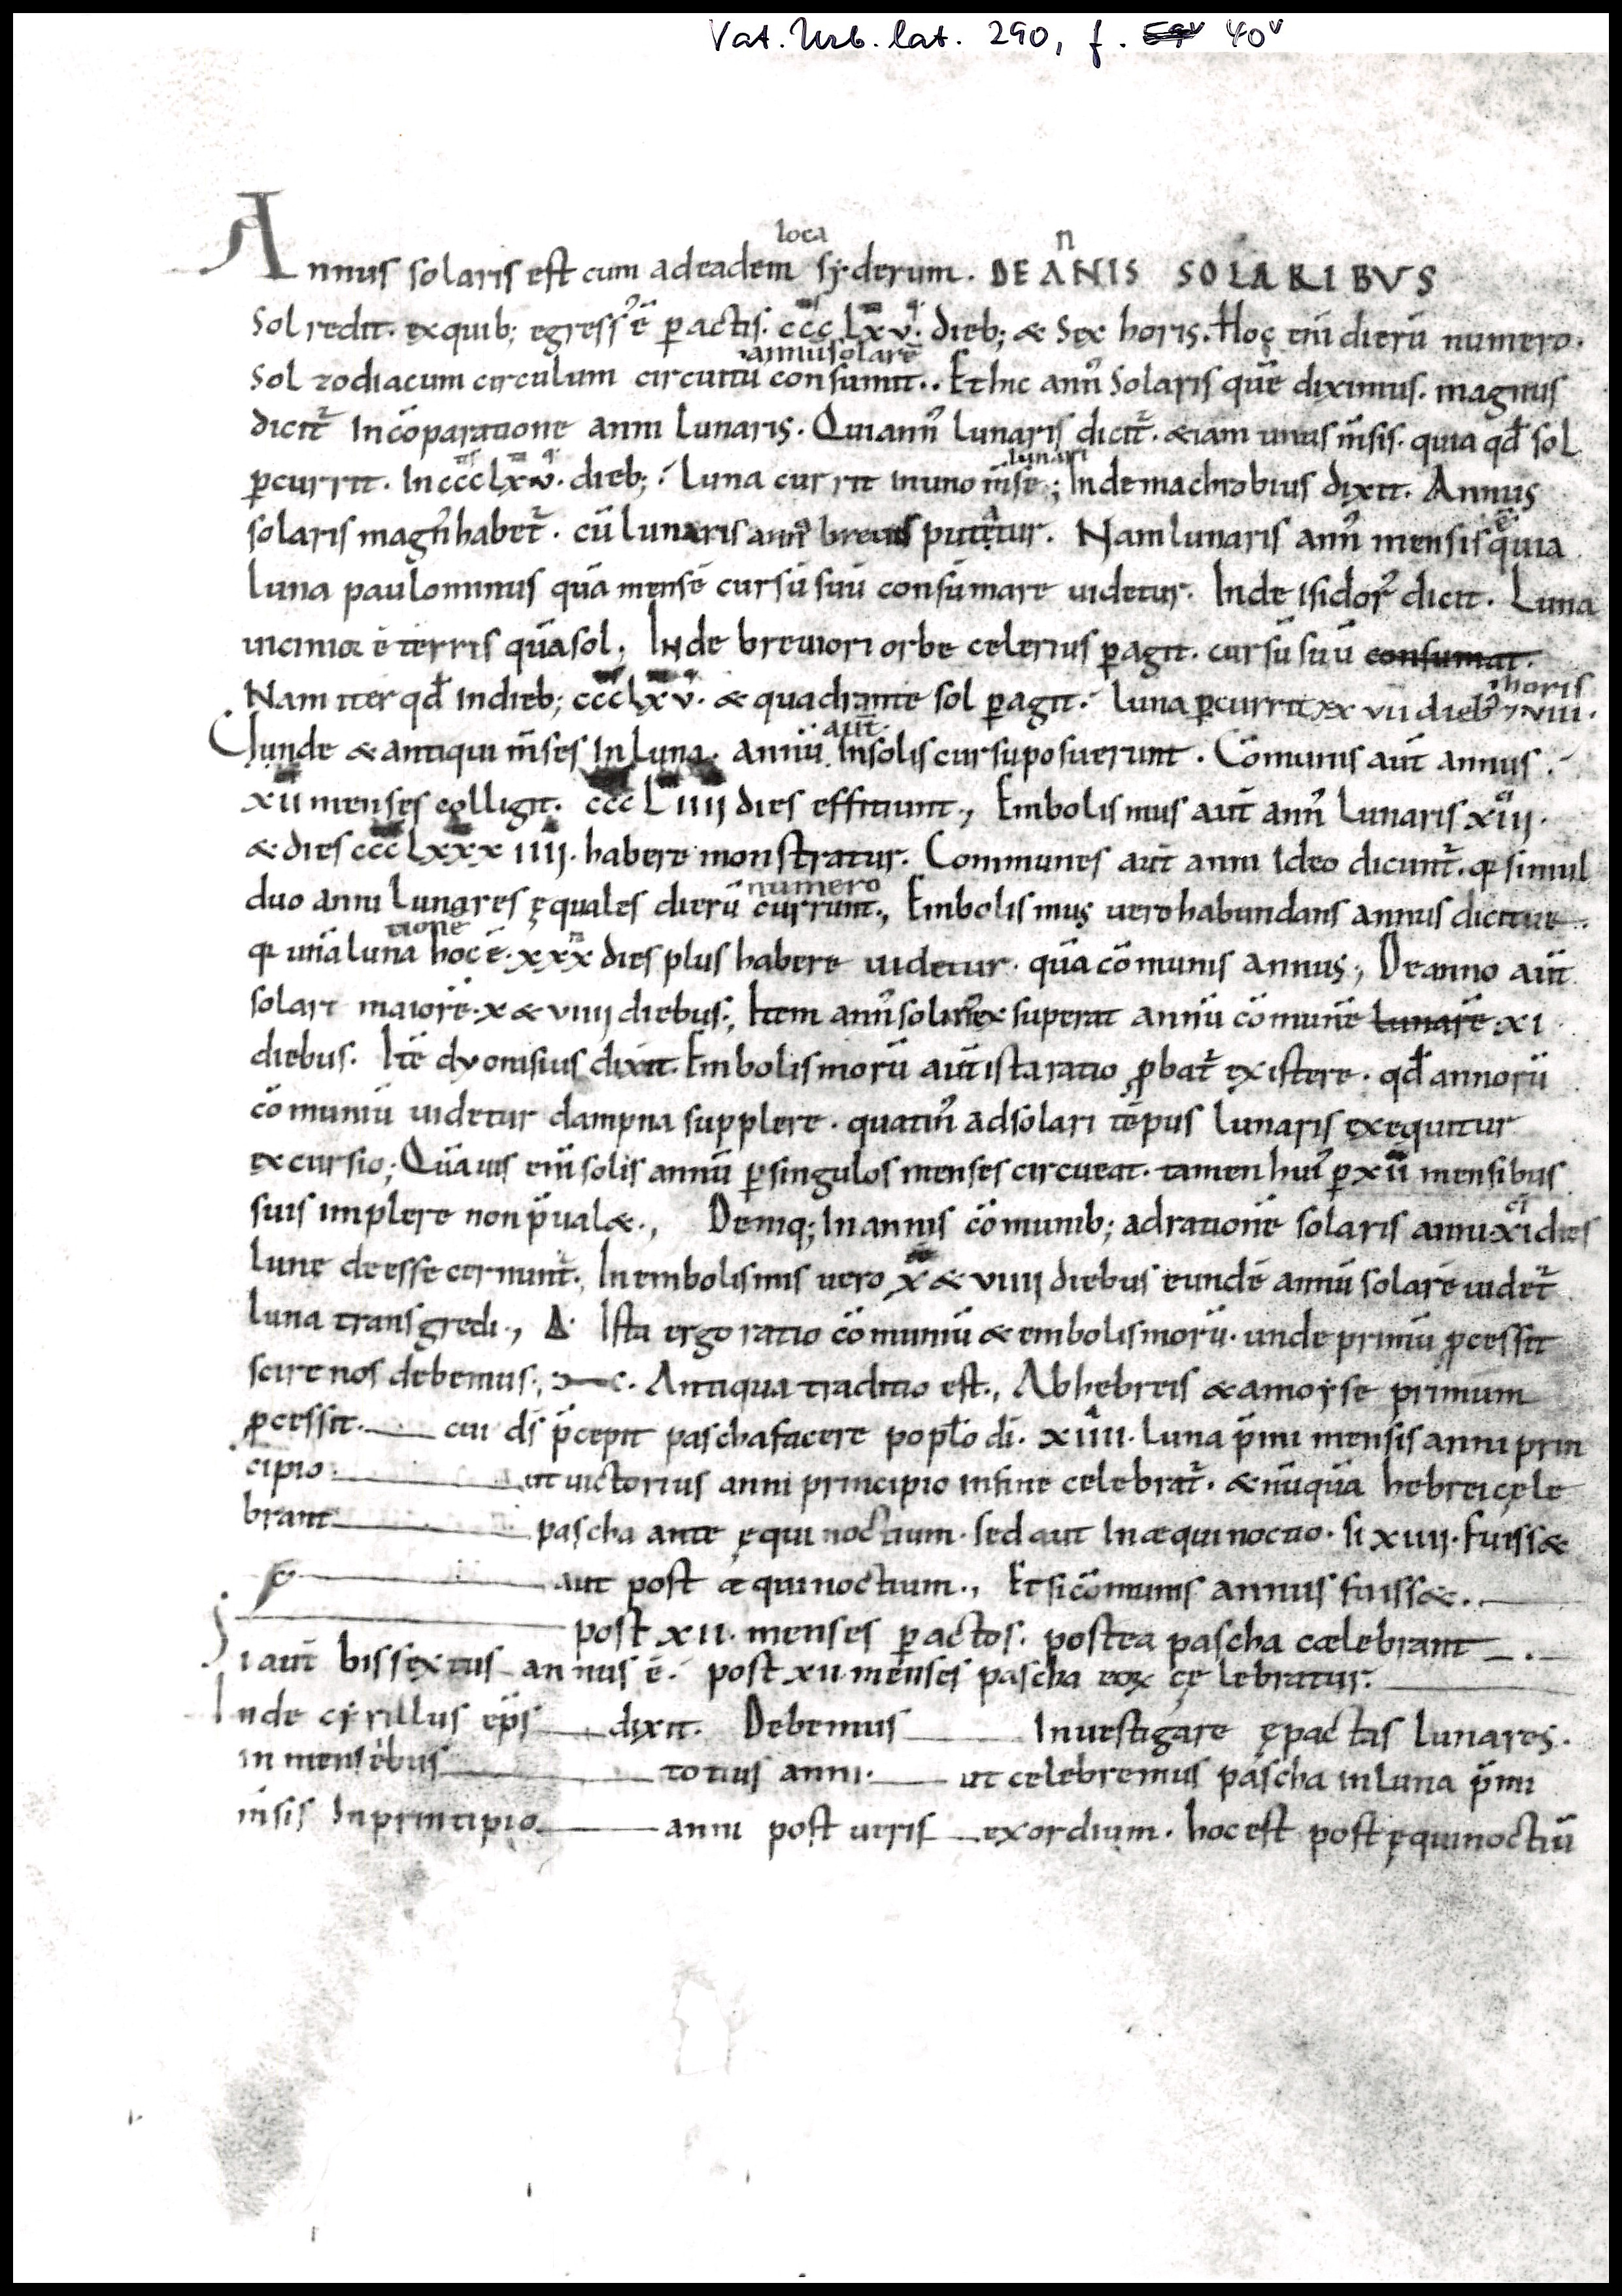 Vat. Urb. lat. 290, f. 59v 40v
loca n
Annus solaris est cum ad eadem syderum. DE ANIS SOLARIBVS
Sol redit. ex quib; egress᾽ ē ꝑactis. ccc lxv. dieb; & sex horis. Hoc eni dierū numero.
annū solarē
Sol zodiacum circulum circuitu consumit.. Et hic ann᾽ solaris quē diximus. magnus
dicit᷑ In cōparatione anni lunaris. Quia ann᾽ lunaris dicit᷑. & iam unus m̄sis. quia qđ sol
lunari
ꝑcurrit. In ccclxv. dieb; luna currit in uno m̄se; Inde machrobius dixit. Annus
solaris magn᾽ habet᷑. cū lunaris ann᾽ breuis putetur. Nam lunaris ann᾽ mensis ē quia
luna paulominus quā mensē cursū suū consūmare uidetur. Inde isidor᾽ dicit. Luna
uicinior ē terris quā sol. Inde breuiori orbe celerius ꝑagit. cursū suū consumat.
horis
Nam iter qđ in dieb; ccclxv. & quadrante sol ꝑagit. luna ꝑcurrit xxvii dieb᾽ 7 viii.
aut̄
Unde & antiqui m̄ses In luna. annū In solis cursu posuerunt. Cōmunis aut̄ annus.
xii menses colligit. ccc liiii dies effitiunt., Embolismus aut̄ ann᾽ lunaris xiii.
& dies ccc lxxx iiii. habere monstratur. Communes aut̄ anni Ideo dicunt᷑. ꝙ simul
numero
duo anni lunares ęquales dierū currunt., Embolismus uero habundans annus dicitur.
tione
ꝙ unā luna hoc ē. xxx dies plus habere uidetur. quā cōmunis annus., De anno aut̄
solari maiorē. x & viiii diebus., Item ann᾽ solaris exsuperat annū cōmunē lunarē xi
diebus. Itē dyonisius dixit. Embolismorū aut̄ ista ratio ꝓbat᷑ existere. qđ annorū
cōmuniū uidetur dampna supplere. quatin᾽ ad solari tēpus lunaris exequitur
excursio; Quāuis eni solis annū ꝑ singulos menses circueat. tamen hui᾽ ꝑ xii mensibus
suis implere non p̄ual&., Deniq; In annis cōmunib; ad rationē solaris anni xi dies
lunę deesse cernunt᷑. In embolismis uero x & viiii diebus eundē annū solarē uidet᷑
luna transgredi., Δ Ista ergo ratio cōmuniū & embolismorū. unde primū ꝓcessit
scire nos debemus., Antiqua traditio est., Ab hebreis & a moyse primum
ꝓcessit. cui ds̄ p̄cepit pascha facere poplo di. xiiii. luna p̄mi mensis anni prin
cipio ut uictorius anni principio in fine celebrat᷑. & nūquā hebrei cele
brant pascha ante ęquinoctium. sed aut In æquinoctio. si xiiii. fuiss&
aut post æquinoctium., Et si cōmunis annus fuiss&.
post xii. menses ꝑactos. postea pascha cælebrant
Si aut̄ bissextus annus ē. post xii menses pascha eoꝝ cęlebratur.
Inde cyrillus ep̄s dixit. Debemus Inuestigare ępactas lunares.
in mensebus totius anni. ut celebremus pascha in luna p̄mi
m̄sis In principio anni post ueris exordium. hoc est post ęquinoctiū